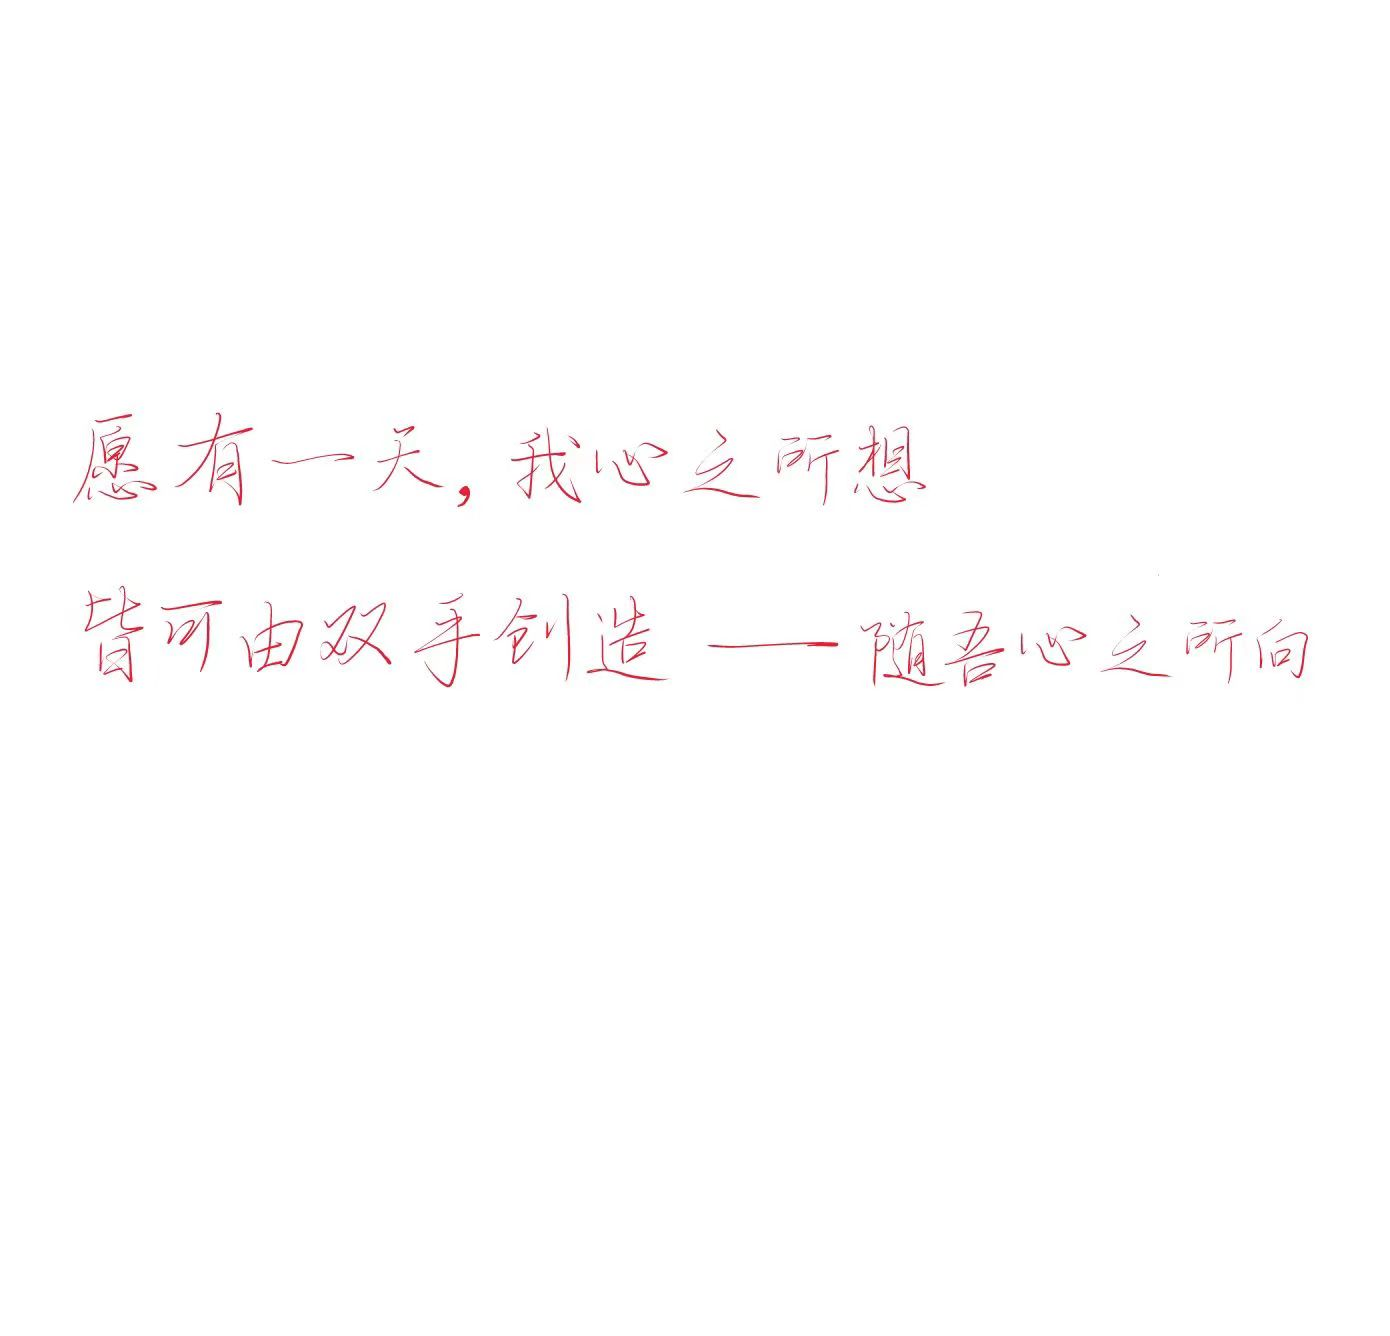 愿有一天,我心之所想
皆可由双手创造——随吾心之所向